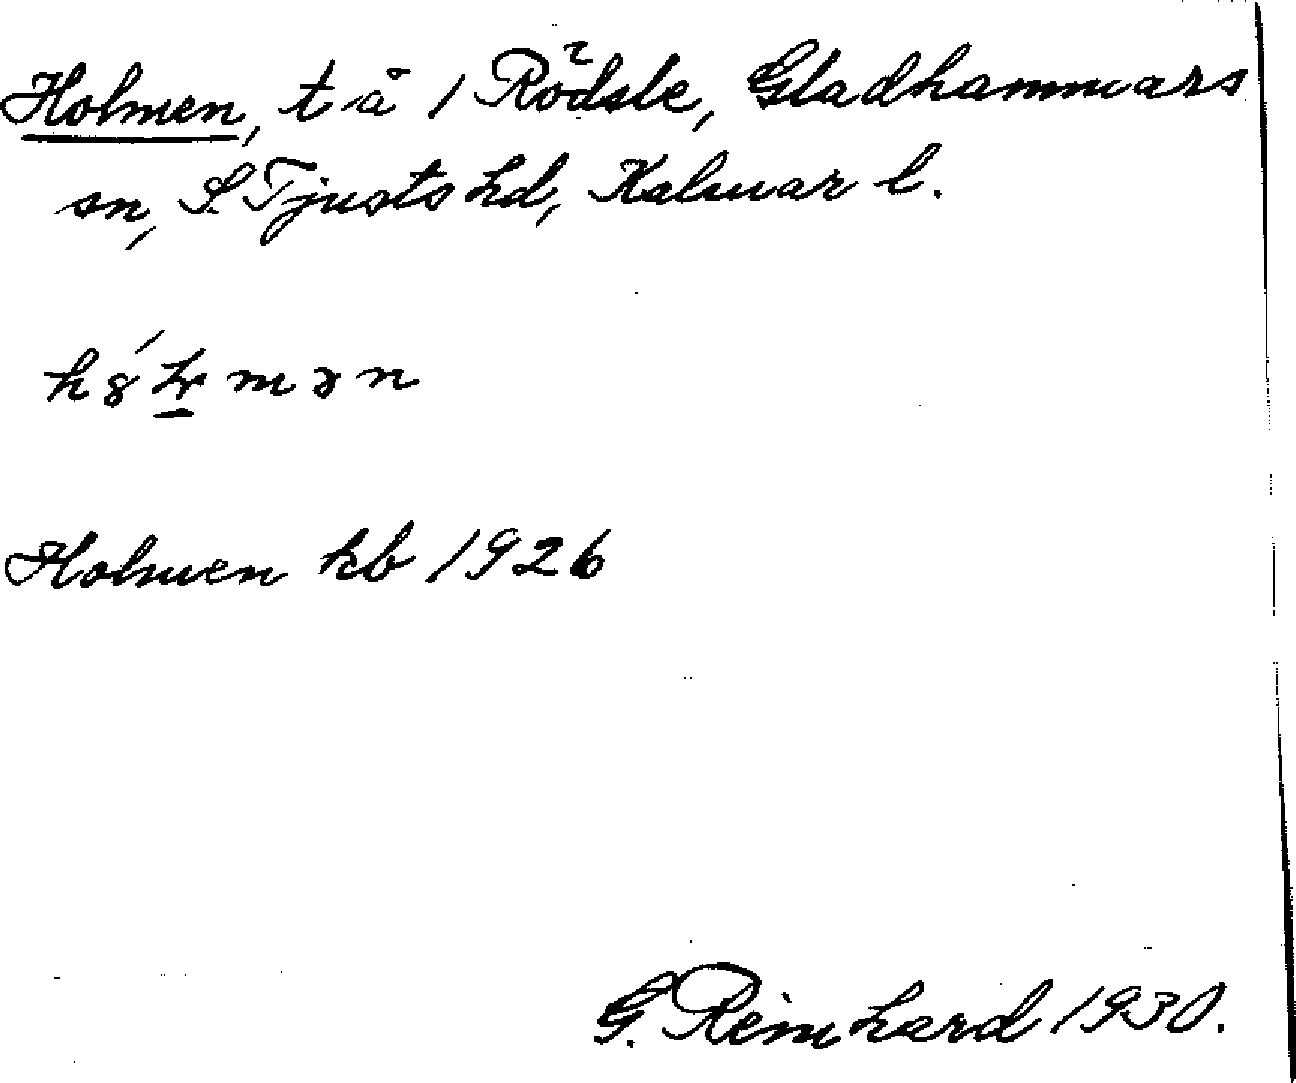 Holmen, t å / Rödsle, Gladhammars
sn, S. Tjusts hd, Kalmar l.
Holmen kb 1926
G. Reinhard 1930.